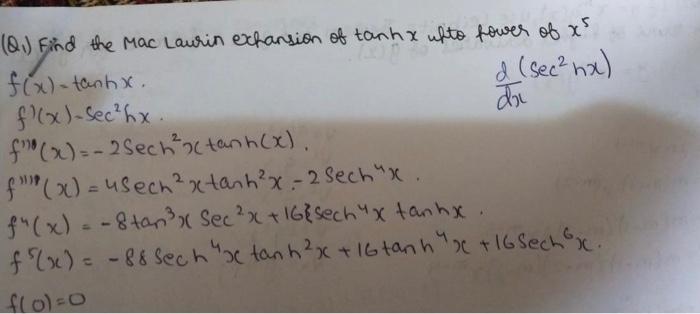 (Q.1) Find the Mac Laurin expansion of tanhx upto power of x⁵
f(x) = tanhx.
d/dx (sec²hx)
f'(x) = sec²hx.
f'''(x) = -2Sech²x tanh(x).
f''''(x) = 4Sech²x tanh²x - 2Sech⁴x.
f⁴(x) = -8tan³x Sec²x + 16{Sech⁴x tanhx.
f⁵(x) = -88Sech⁴x tanh²x + 16tanh⁴x + 16Sech⁶x.
f(0)=0